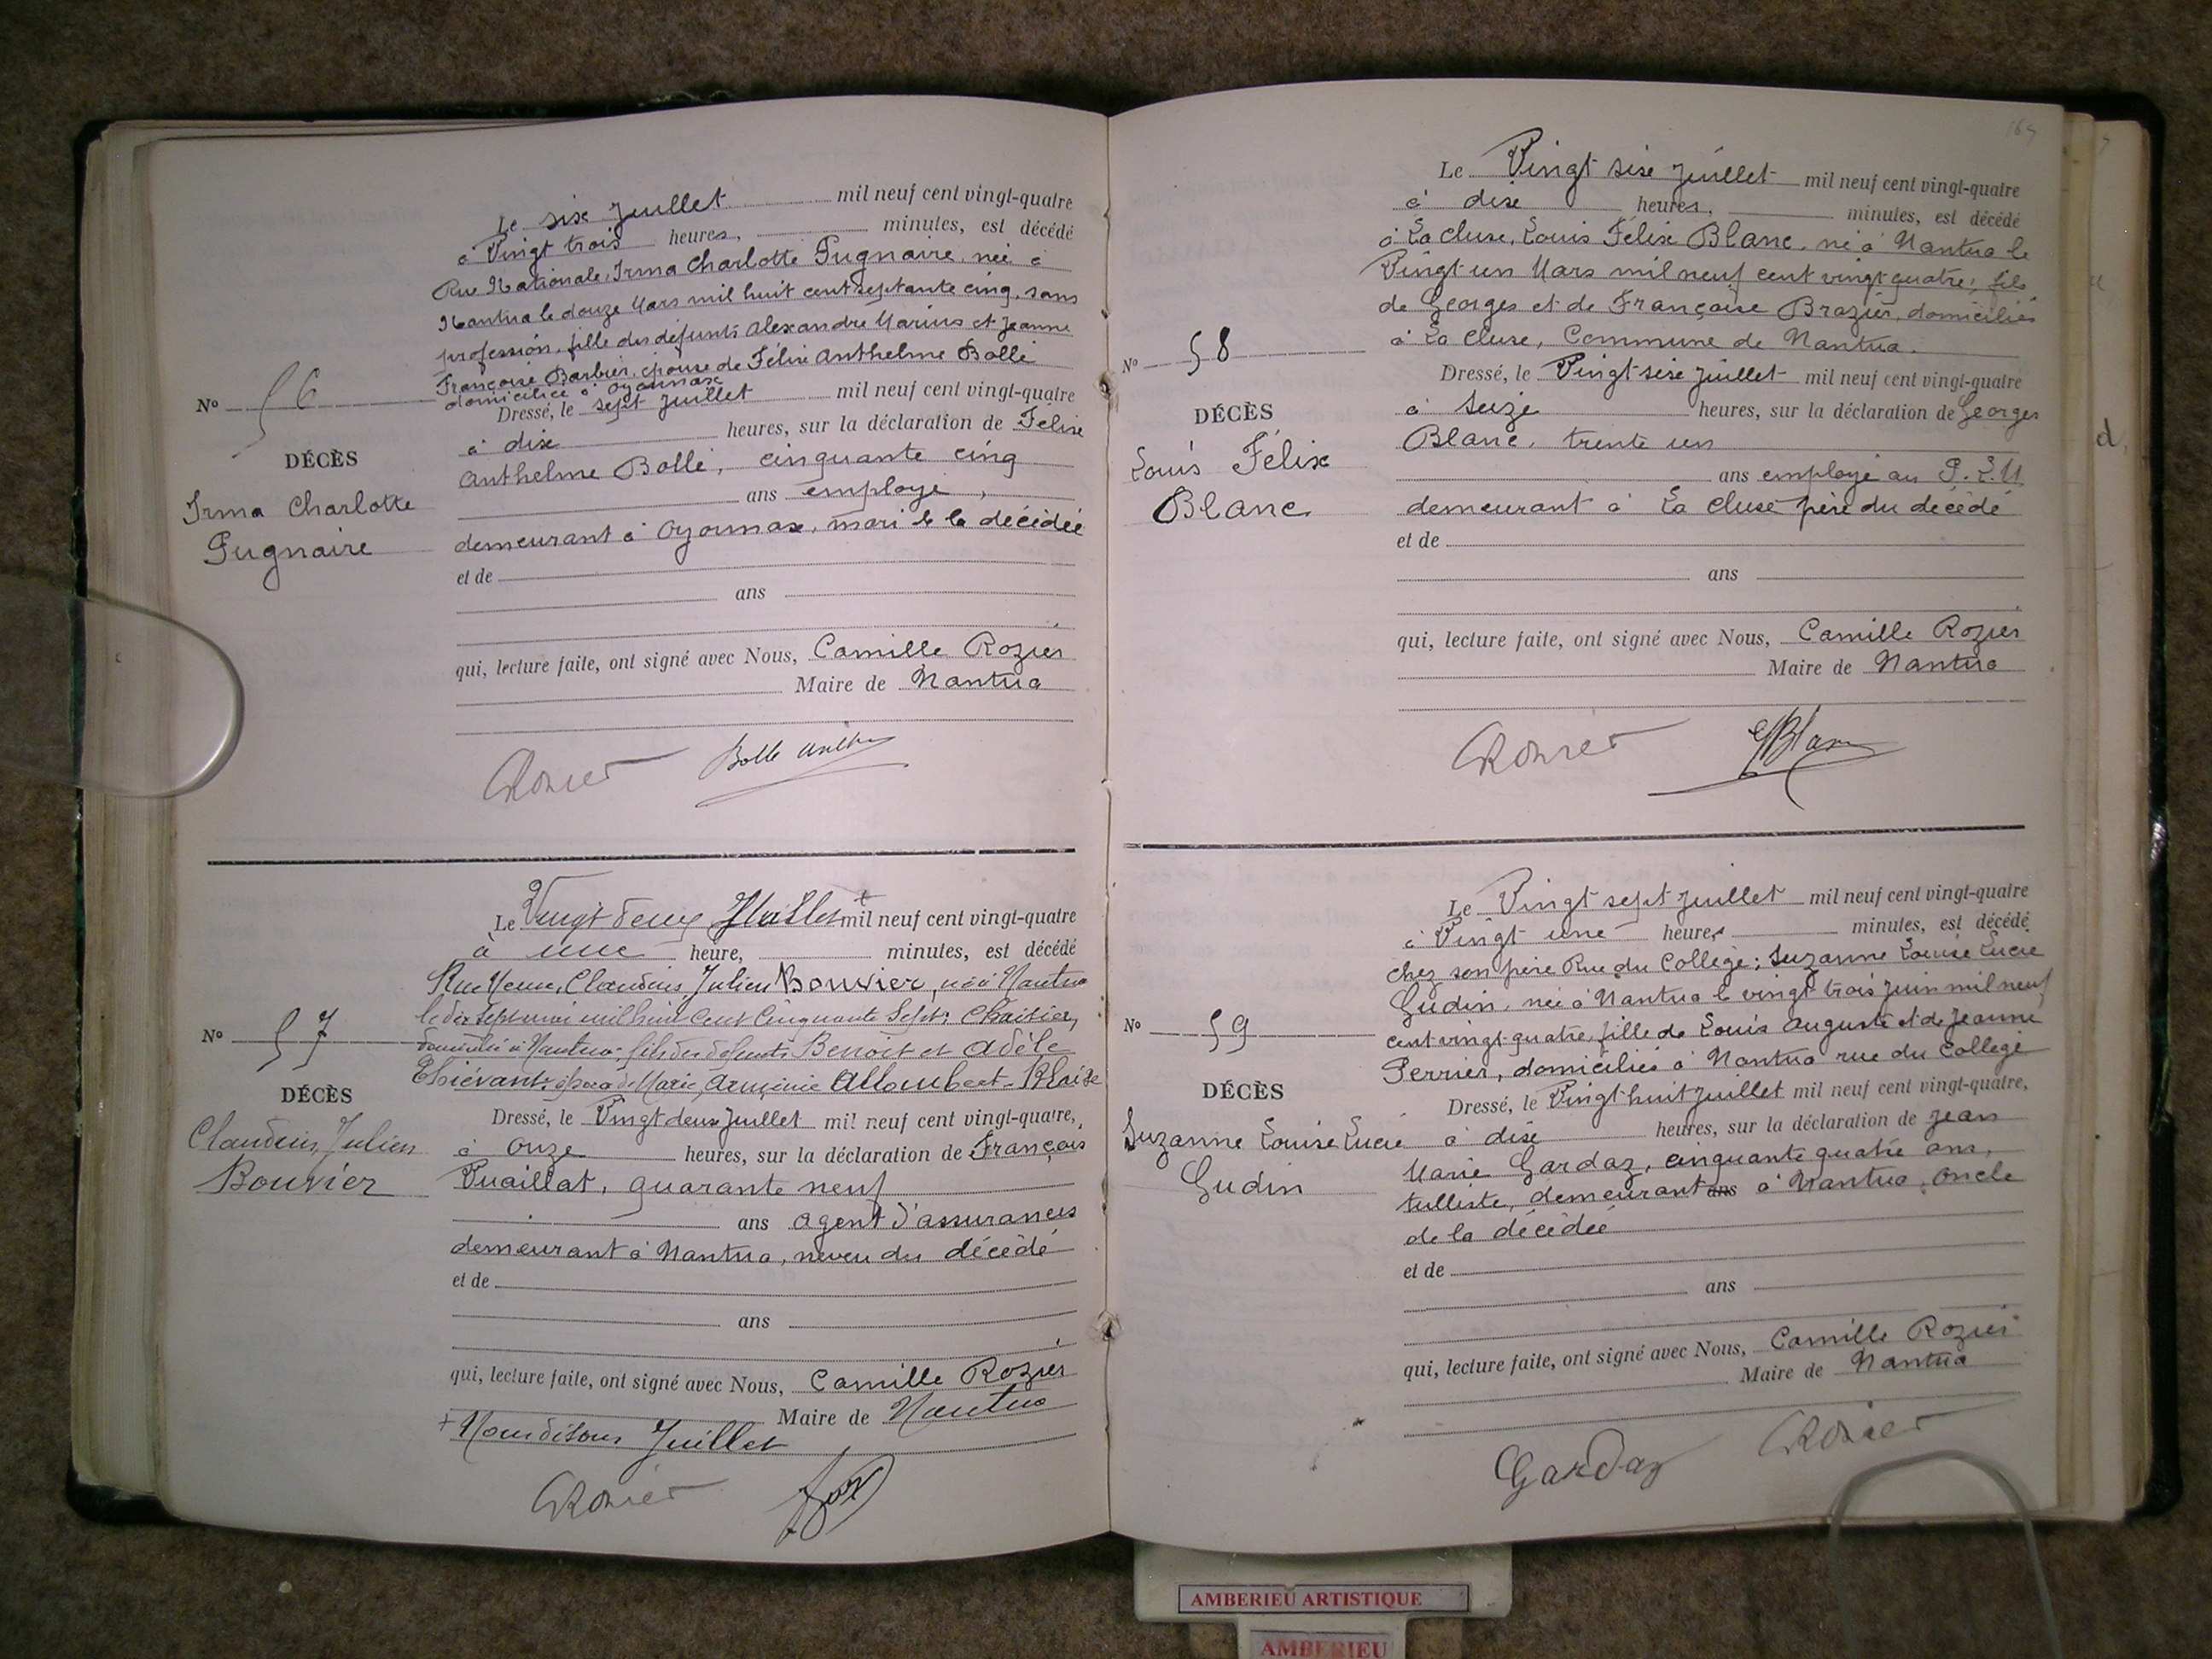 Le six Juillet mil neuf cent vingt-quatre
à Vingt trois heures, minutes, est décédé
Rue Nationale, Irma Charlotte Pugnaire, née à
Nantua le douze Mars mil huit cent septante cinq, sans
profession, fille des défunts Alexandre Marius et Jeanne
Françoise Barbier, épouse de Félix Anthelme Bollé
domiciliée à Oyonnax
No 56
Dressé, le sept Juillet mil neuf cent vingt-quatre
à dix heures, sur la déclaration de Félix
DÉCÈS
Anthelme Bollé, cinquante cinq
Irma Charlotte
Pugnaire
ans employé,
demeurant à Oyonnax, mari de la décédée
et de
ans
qui, lecture faite, ont signé avec Nous, Camille Rozier
Maire de Nantua
CRozier Bolle Anth
Le Vingt deux Juillet mil neuf cent vingt-quatre
à une heure, minutes, est décédé
Rue Neuve, Claudius, Julien Bouvier, né à Nantua
le dix sept mai mil huit cent cinquante sept; Chaisier,
domicilié à Nantua, fils des défunts Benoît et Adèle
Thiévant; époux de Marie, Arménie Allombert-Blaise
No 57
DÉCÈS
Claudius, Julien
Bouvier
Dressé, le Vingt deux Juillet mil neuf cent vingt-quatre,
à onze heures, sur la déclaration de François
Puaillat, quarante neuf
ans agent d'assurances
demeurant à Nantua, neveu du décédé
et de
ans
qui, lecture faite, ont signé avec Nous, Camille Rozier
Maire de Nantua
+ Nous disons Juillet
CRozier
Le Vingt six Juillet mil neuf cent vingt-quatre
à dix heures, minutes, est décédé
à La Cluse, Louis Félix Blanc, né à Nantua le
Vingt un Mars mil neuf cent vingt quatre, fils
de Georges et de Françoise Brazier, domiciliés
à La Cluse, Commune de Nantua.
No 58
DÉCÈS
Louis Félix
Blanc
Dressé, le Vingt six Juillet mil neuf cent vingt-quatre
à seize heures, sur la déclaration de Georges
Blanc, trente un
ans employé au P.L.M
demeurant à La Cluse père du décédé
et de
ans
qui, lecture faite, ont signé avec Nous, Camille Rozier
Maire de Nantua
CRozier GBlanc
Le Vingt sept Juillet mil neuf cent vingt-quatre
à Vingt une heures minutes, est décédé
chez son père Rue du Collège; Suzanne Louise Lucie
Gudin, née à Nantua le vingt trois juin mil neuf
cent vingt-quatre, fille de Louis Auguste et de Jeanne
Perrier, domiciliés à Nantua rue du Collège
No 59
DÉCÈS
Suzanne Louise Lucie
Gudin
Dressé, le Vingt huit Juillet mil neuf cent vingt-quatre,
à dix heures, sur la déclaration de Jean
Marie Gardaz, cinquante quatre ans,
tulliste, demeurant ans à Nantua, oncle
de la décédée
et de
ans
qui, lecture faite, ont signé avec Nous, Camille Rozier
Maire de Nantua
Gardaz CRozier
AMBERIEU ARTISTIQUE
AMBERIEU